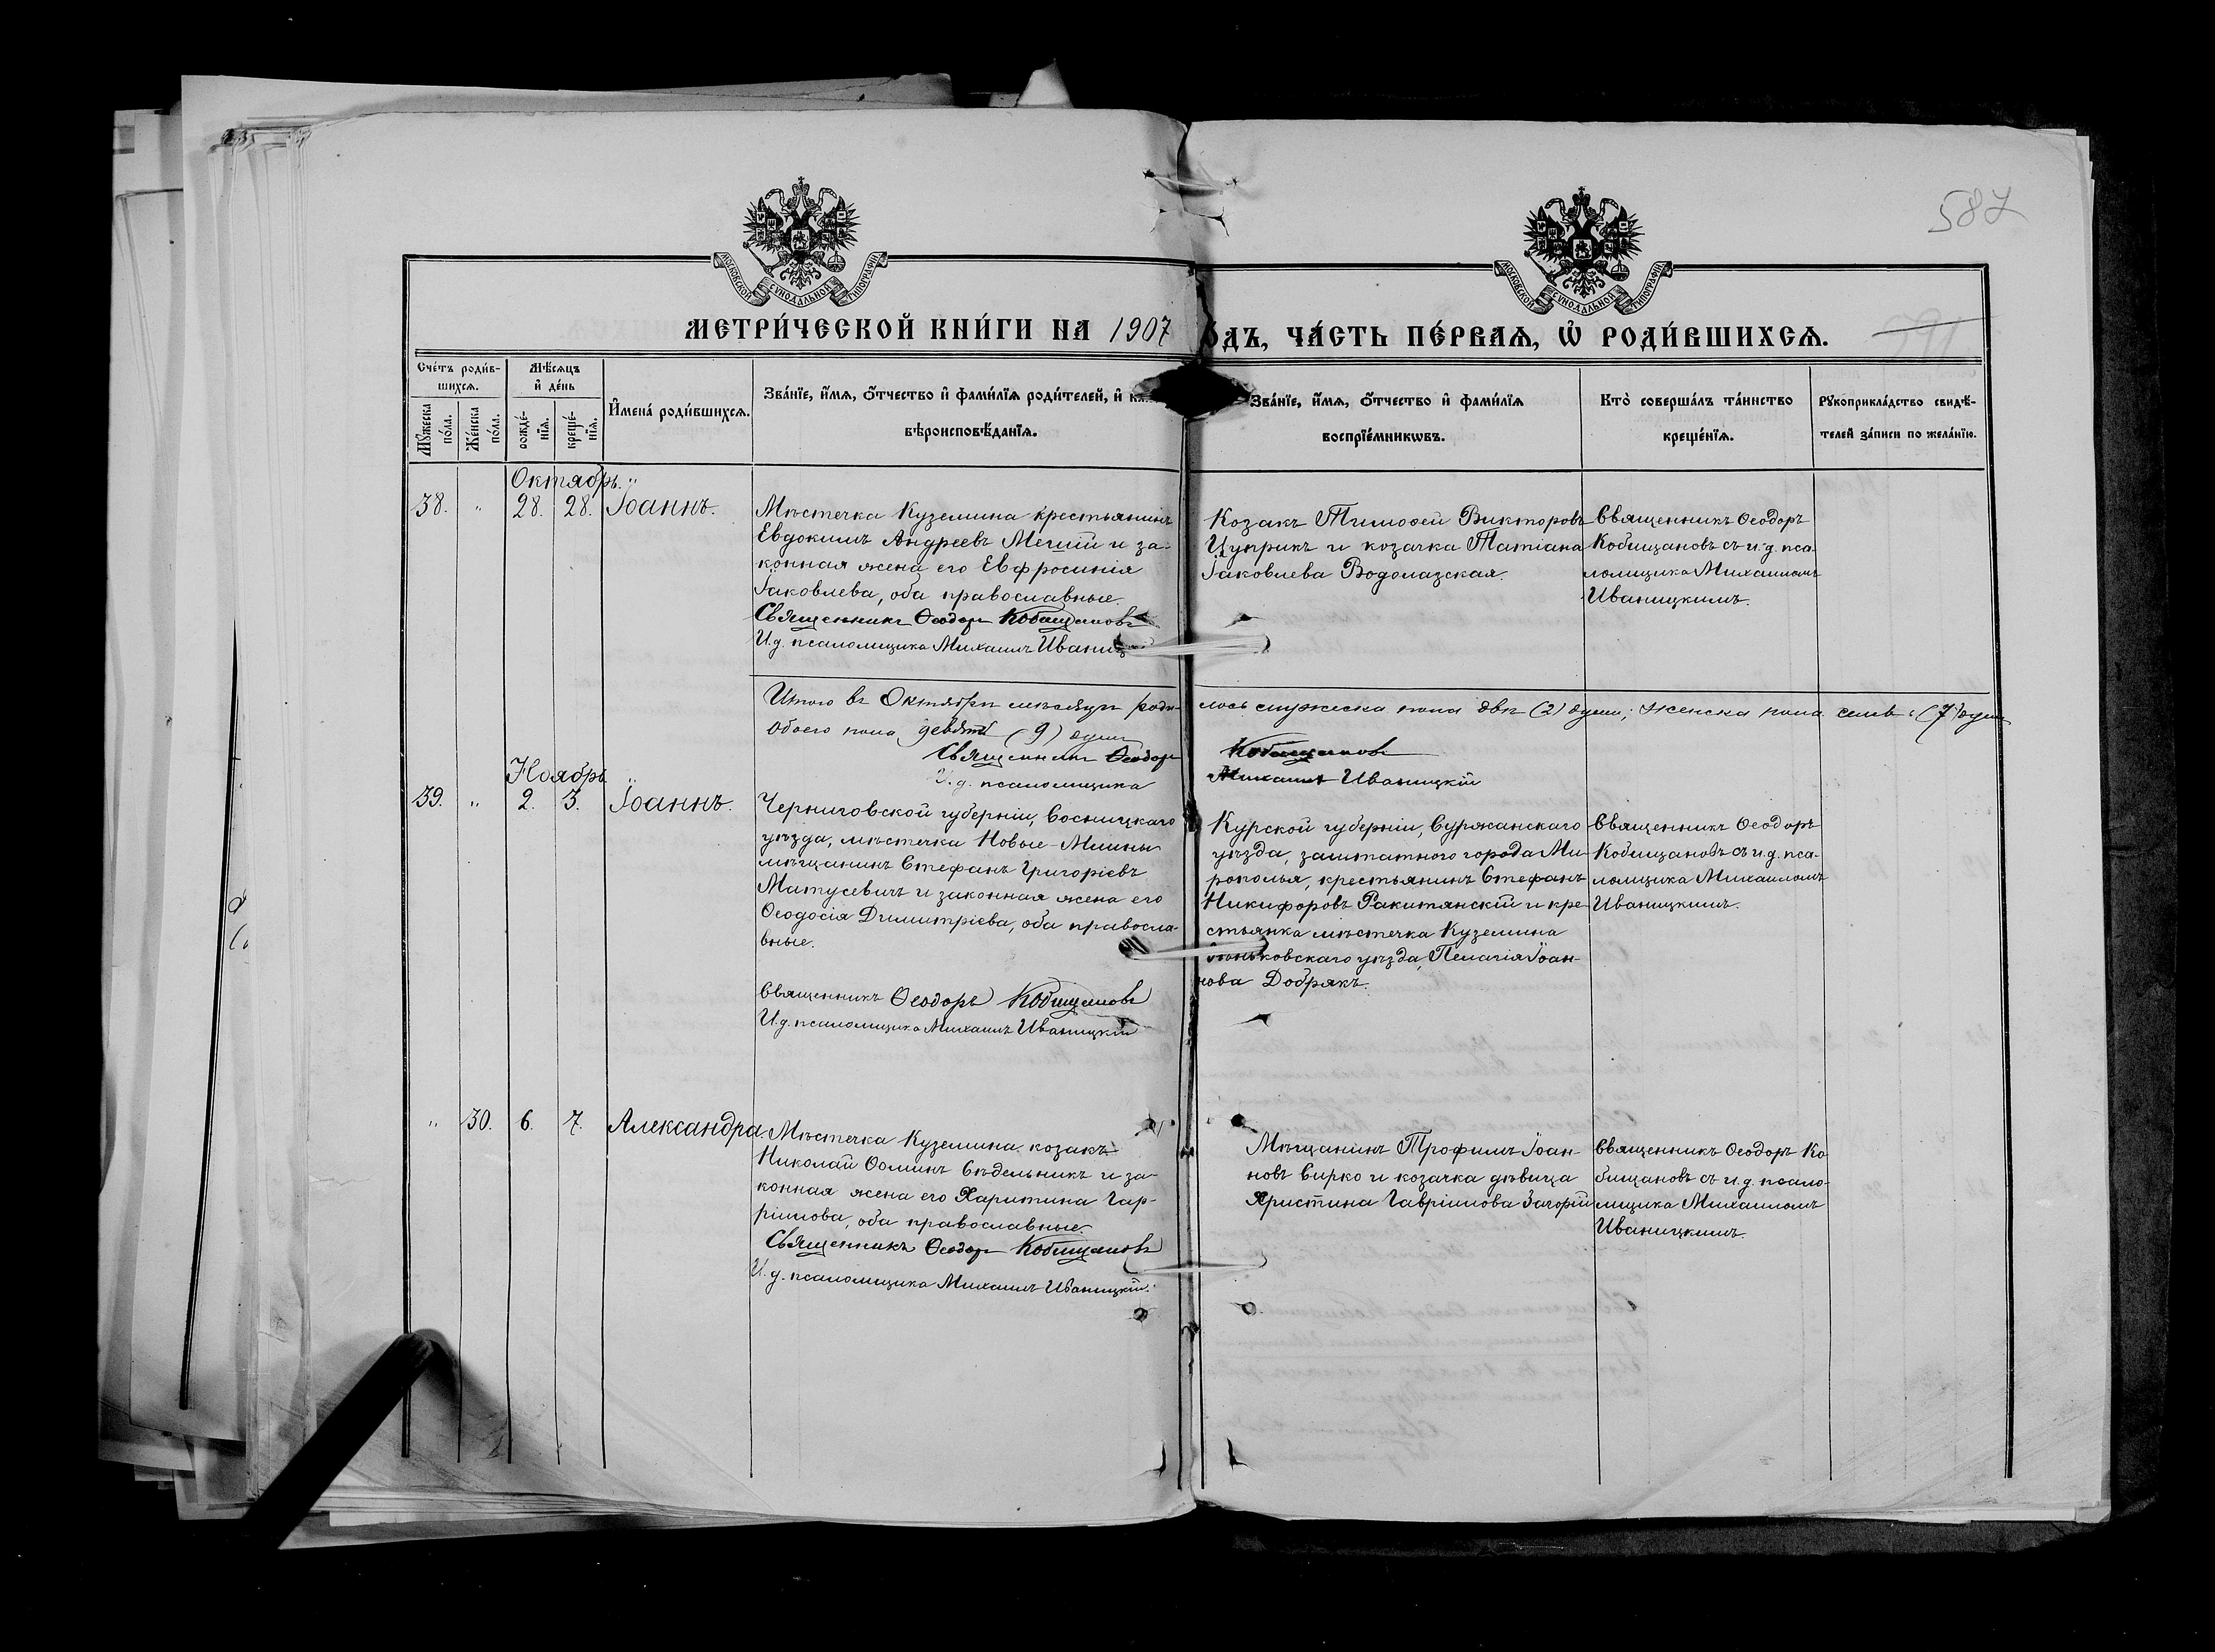 587
МОСКОВСКОЙ СУНОДАЛЬНОЙ ТИПОГРАФІИ
МОСКОВСКОЙ СУНОДАЛЬНОЙ ТИПОГРАФІИ
МЕТРИ́ЧЕСКОЙ КНИ́ГИ НА 1907
ОДЪ, ЧА́СТЬ ПЕ́РВАѦ, Ѡ҆ РОДИ́ВШИХСѦ.
Сче́тъ роди́в-
шихсѧ.
Мѣ́сѧцъ
и҆ де́нь
Мꙋ́жеска
по́ла.
Же́нска
по́ла.
рожде́-
нїѧ.
креще́-
нїѧ.
И҆мена̀ роди́вшихсѧ.
Зва́нїе, и҆́мѧ, ѻ҆́тчество и҆ фамѝлїѧ роди́телей, и҆
вѣроисповѣ́данїѧ.
Зва́нїе, и҆́мѧ, ѻ҆́тчество и҆ фамѝлїѧ
воспрїе́мникѡвъ.
Кто̀ соверша́лъ та́инство
креще́нїѧ.
Рꙋкоприкла́дство свидѣ́-
телей за́писи по жела́нїю.
Октябрь.
38. " 28. 28. Іоаннъ.
Мѣстечка Куземина крестьянинъ
Евдокимъ Андреевъ Мечий и за-
конная жена его Евфросинія
Іаковлева, оба православные.
Священникъ Ѳеодоръ Кобищановъ
И.д. псаломщика Михаилъ Иваниц
Козакъ Тимоѳей Викторовъ
Цуприкъ и козачка Татіана
Іаковлева Водолазская.
Священникъ Ѳеодоръ
Кобищановъ съ и.д. пса-
ломщика Михаиломъ
Иваницкимъ.
Итого въ Октябрѣ мѣсяцѣ роди-
лось мужеска пола двѣ (2) души; женска пола семь (7) душ
обоего пола девять (9) душъ
Священникъ Ѳеодоръ
Кобищановъ
И.д. псаломщика
Михаилъ Иваницкій
Ноябрь
39. " 2. 3. Іоаннъ.
Черниговской губерніи, Сосницкаго
уѣзда, мѣстечка Новые-Млины
мѣщанинъ Стефанъ Григоріевъ
Матусевичъ и законная жена его
Ѳеодосія Димитріева, оба правосла-
вные.
Священникъ Ѳеодоръ Кобищановъ
И.д. псаломщика Михаилъ Иваницкій
Курской губерніи, Суржанскаго
уѣзда, заштатного города Ми-
рополья, крестьянинъ Стефанъ
Никифоровъ Ракитянскій и кре-
стьянка мѣстечка Куземина
Зѣньковскаго уѣзда, Пелагія Іоан-
нова Добрякъ.
Священникъ Ѳеодоръ
Кобищановъ съ и.д. пса-
ломщика Михаиломъ
Иваницкимъ.
" 30. 6. 7. Александра.
Мѣстечка Куземина козакъ
Николай Ѳоминъ Сѣдельникъ и за-
конная жена его Харитина Гав-
ріилова, оба православные.
Священникъ Ѳеодоръ Кобищановъ
И.д. псаломщика Михаилъ Иваницкій.
Мѣщанинъ Трофимъ Іоан-
новъ Сирко и козачка дѣвица
Христина Гавріилова Загорій
Священникъ Ѳеодоръ Ко-
бищановъ съ и.д. псало-
мщика Михаиломъ
Иваницкимъ.